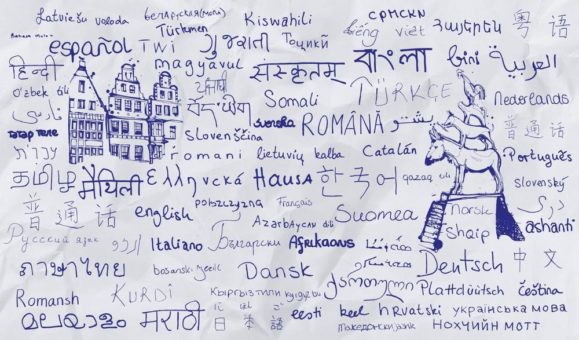 Latviešu valoda беларуская(мова) Kiswahili српски 粤语
Türkmen tiếng việt Հայերեն
español Twi ગુજરાતી Тоҷикӣ বাংলা bini العربية
हिन्दी magyavul संस्कृतम्
o'zbek བོད་ཡིག Somali TÜRKÇE Nederlands
татар теле Slovenščina svenska ROMÂNĂ پښتو 普通话
עברית romani lietuvių kalba Catalán Português
தமிழ் मैथिली Hausa 한국어 qazaq slovenský
普通话 english Français Suomea Norsk
Русский язык اردو Italiano Azərbaycan Български Afrikaans Shqip ashanti
ภาษาไทย bosanski Dansk ქართული Deutsch 中文
Romansh KURDI Кыргыз тили Plattdüütsch Čeština
മലയാളം मराठी 日本語 eesti keel hrvatski українська мова
Македонски јазик Нохчийн мотт